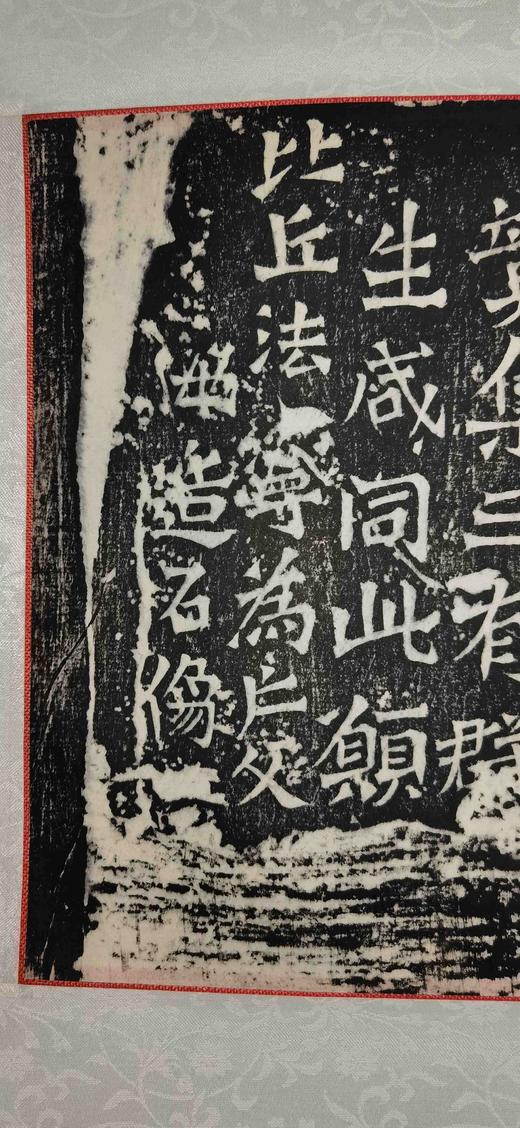 集三有群
生咸同此願
比丘法寧為亡父
母造石像一